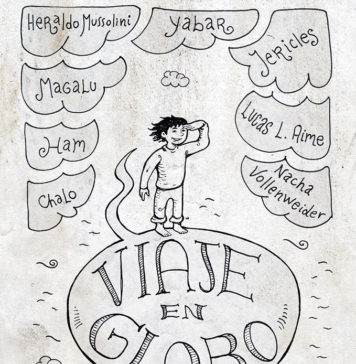 Heraldo Mussolini
Yabar
Jericles
Magalu
Lucas L. Aime
Ham
Nacha
Vollenweider
Chalo
VIAJE
EN
GLOBO